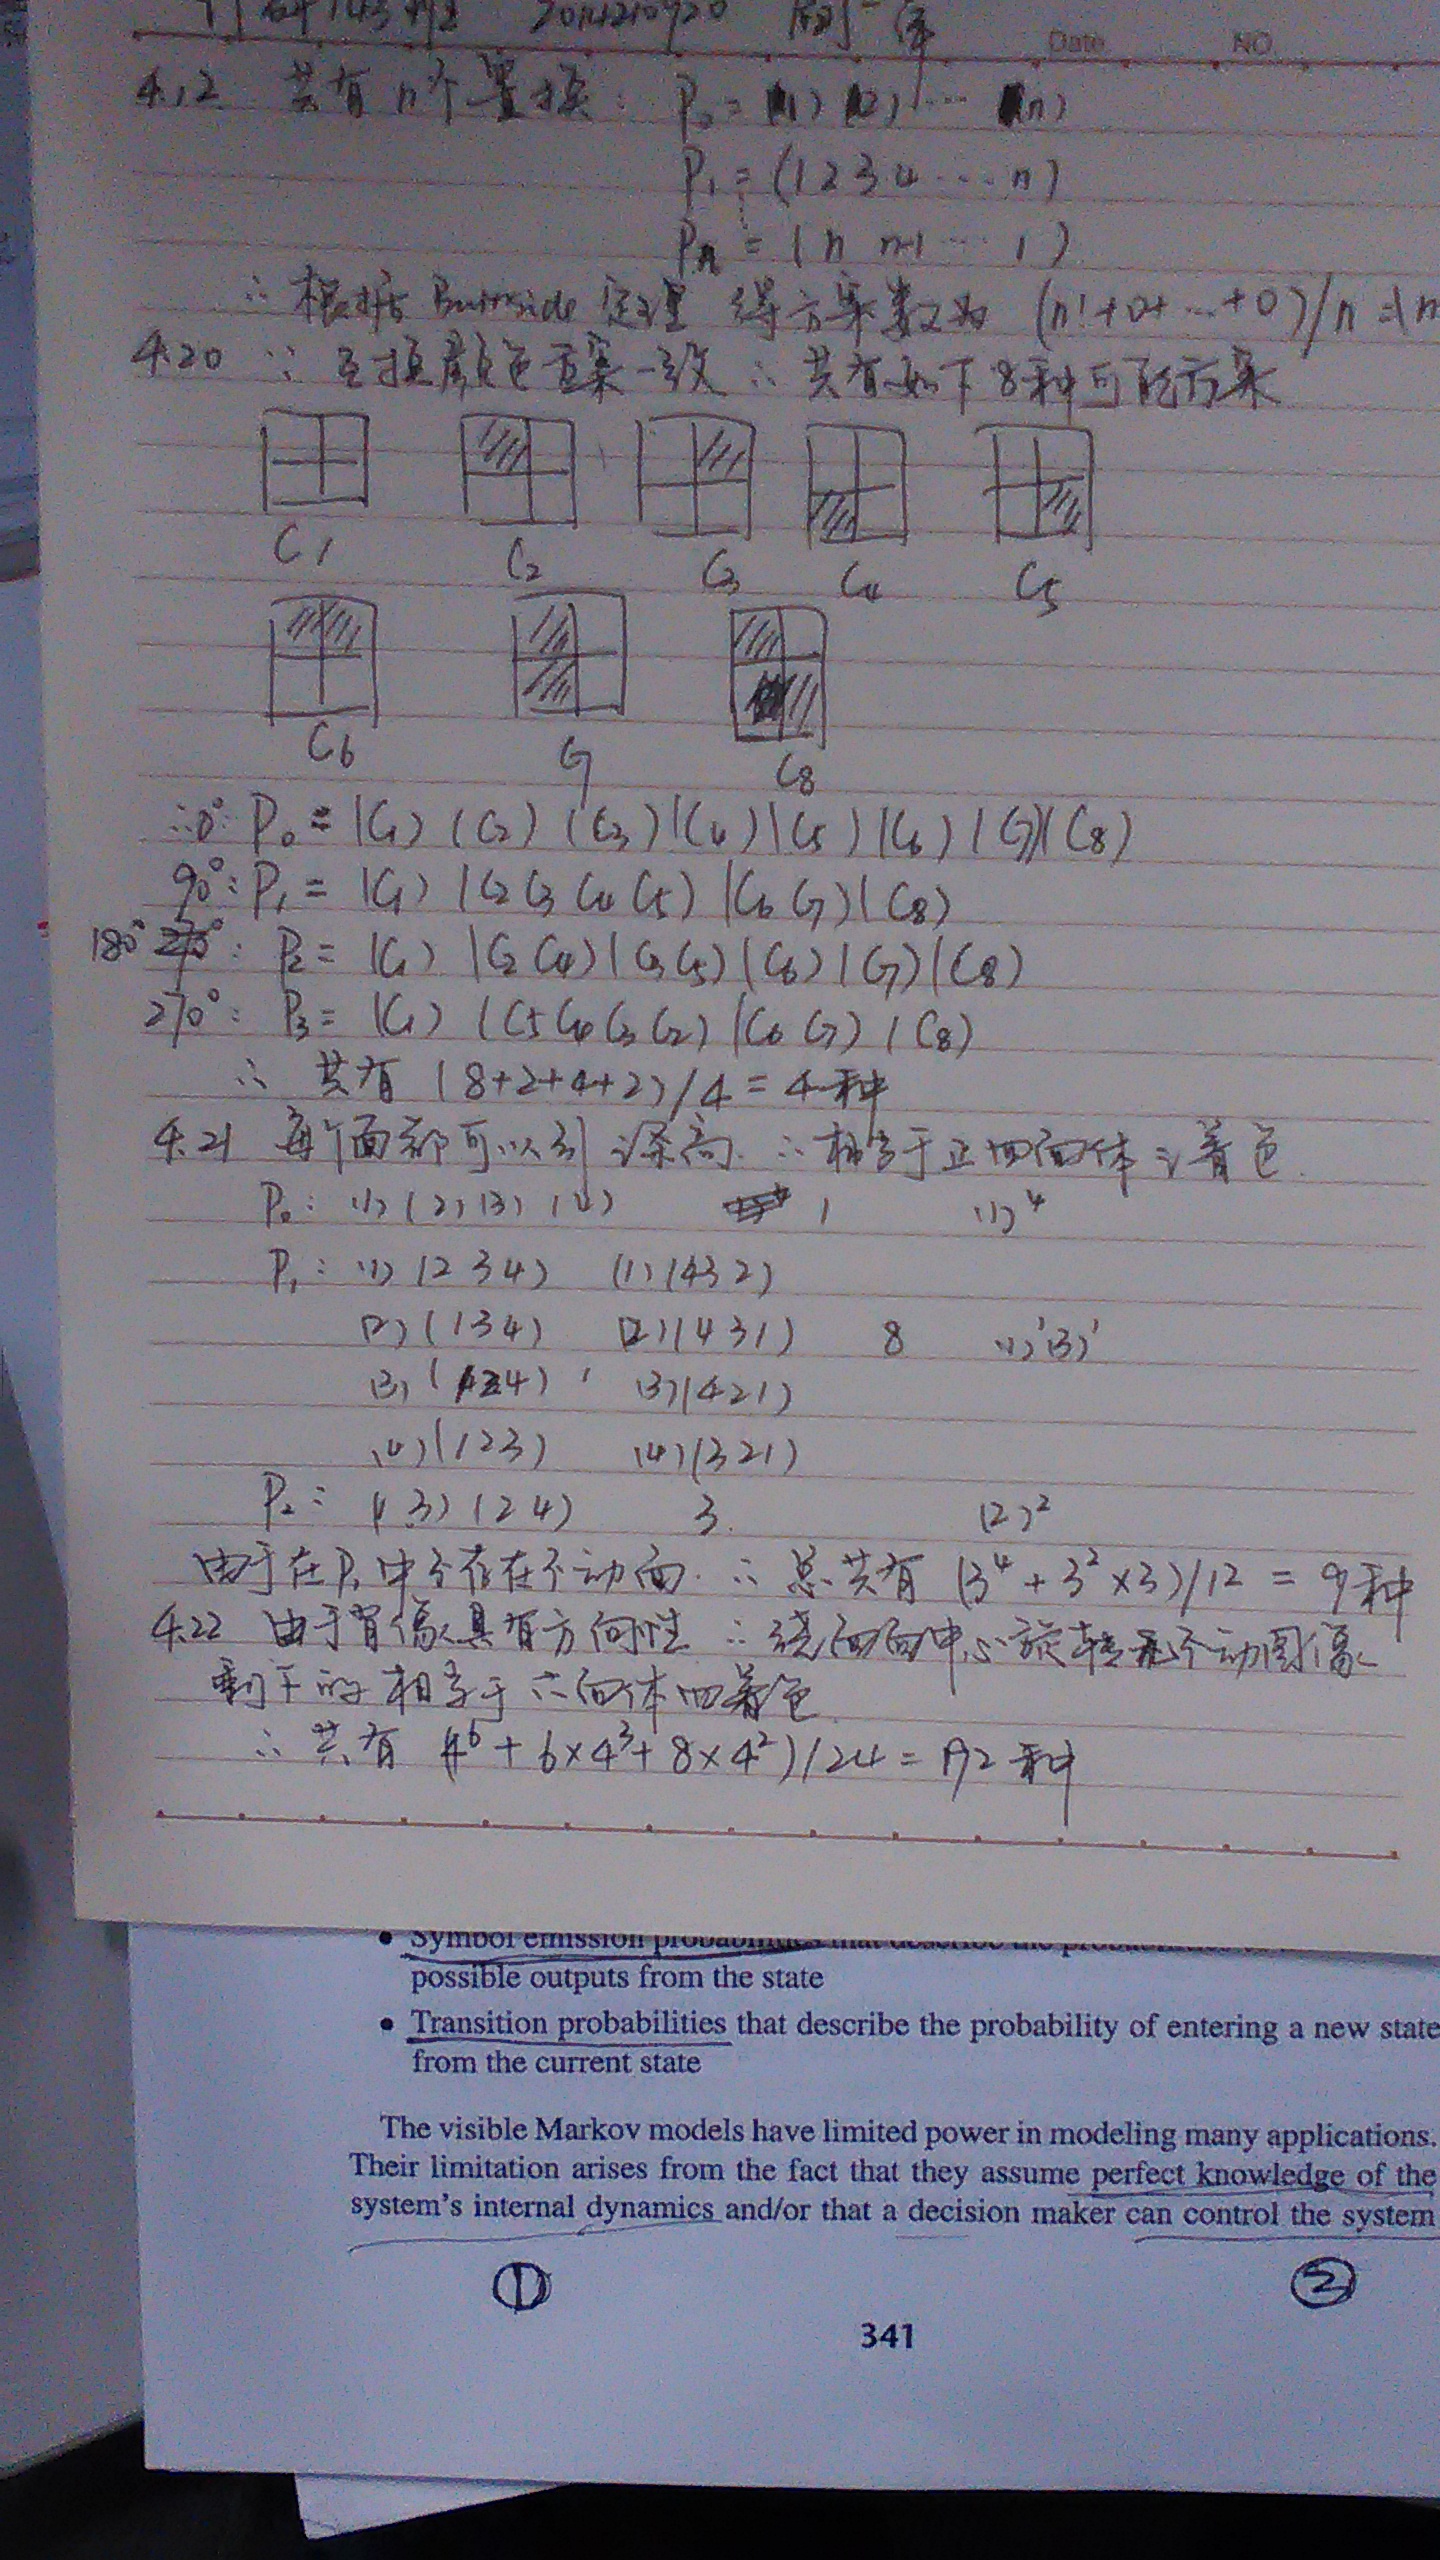 Date NO.
4.12 共有n个置换: P₀ = (1)(2)⋯(n)
P₁ = (1 2 3 4 ⋯ n)
⋮
Pn = (n n-1 ⋯ 1)
∴ 根据 Burnside 定理 得方案数为 (n!+0+⋯+0)/n =
4.20 ∵ 互换颜色 一致 ∴ 共有如下8种可能方案
C1 C2 C3 C4 C5
C6 C7 C8
∴0°: P₀ = (C1)(C2)(C3)(C4)(C5)(C6)(C7)(C8)
90°: P₁ = (C1)(C2 C3 C4 C5)(C6 C7)(C8)
180°: P₂ = (C1)(C2 C4)(C3 C5)(C6)(C7)(C8)
270°: P₃ = (C1)(C5 C4 C3 C2)(C6 C7)(C8)
∴ 共有 (8+2+4+2)/4 = 4种
4.21 每个面都可以引 ∴ 相当于正四面体 着色.
P₀: (1)(2)(3)(4) 1 (1)⁴
P₁: (1)(2 3 4) (1)(4 3 2)
(2)(1 3 4) (2)(4 3 1) 8 (1)¹(3)¹
(3)(1 2 4) (3)(4 2 1)
(4)(1 2 3) (4)(3 2 1)
P₂: (1 3)(2 4) 3. (2)²
由于在P₁中不存在不动面. ∴ 总共有 (3⁴+3²×3)/12 = 9种
4.22 由于肖像具有方向性 ∴ 绕面面中心旋转无不动图像
剩下的相当于六面体四着色
∴ 共有 (4⁶+6×4³+8×4²)/24 = 192种
• Symbol emission probabilities that describe the probabilities
possible outputs from the state
• Transition probabilities that describe the probability of entering a new state
from the current state
The visible Markov models have limited power in modeling many applications.
Their limitation arises from the fact that they assume perfect knowledge of the
system's internal dynamics and/or that a decision maker can control the system
① ②
341